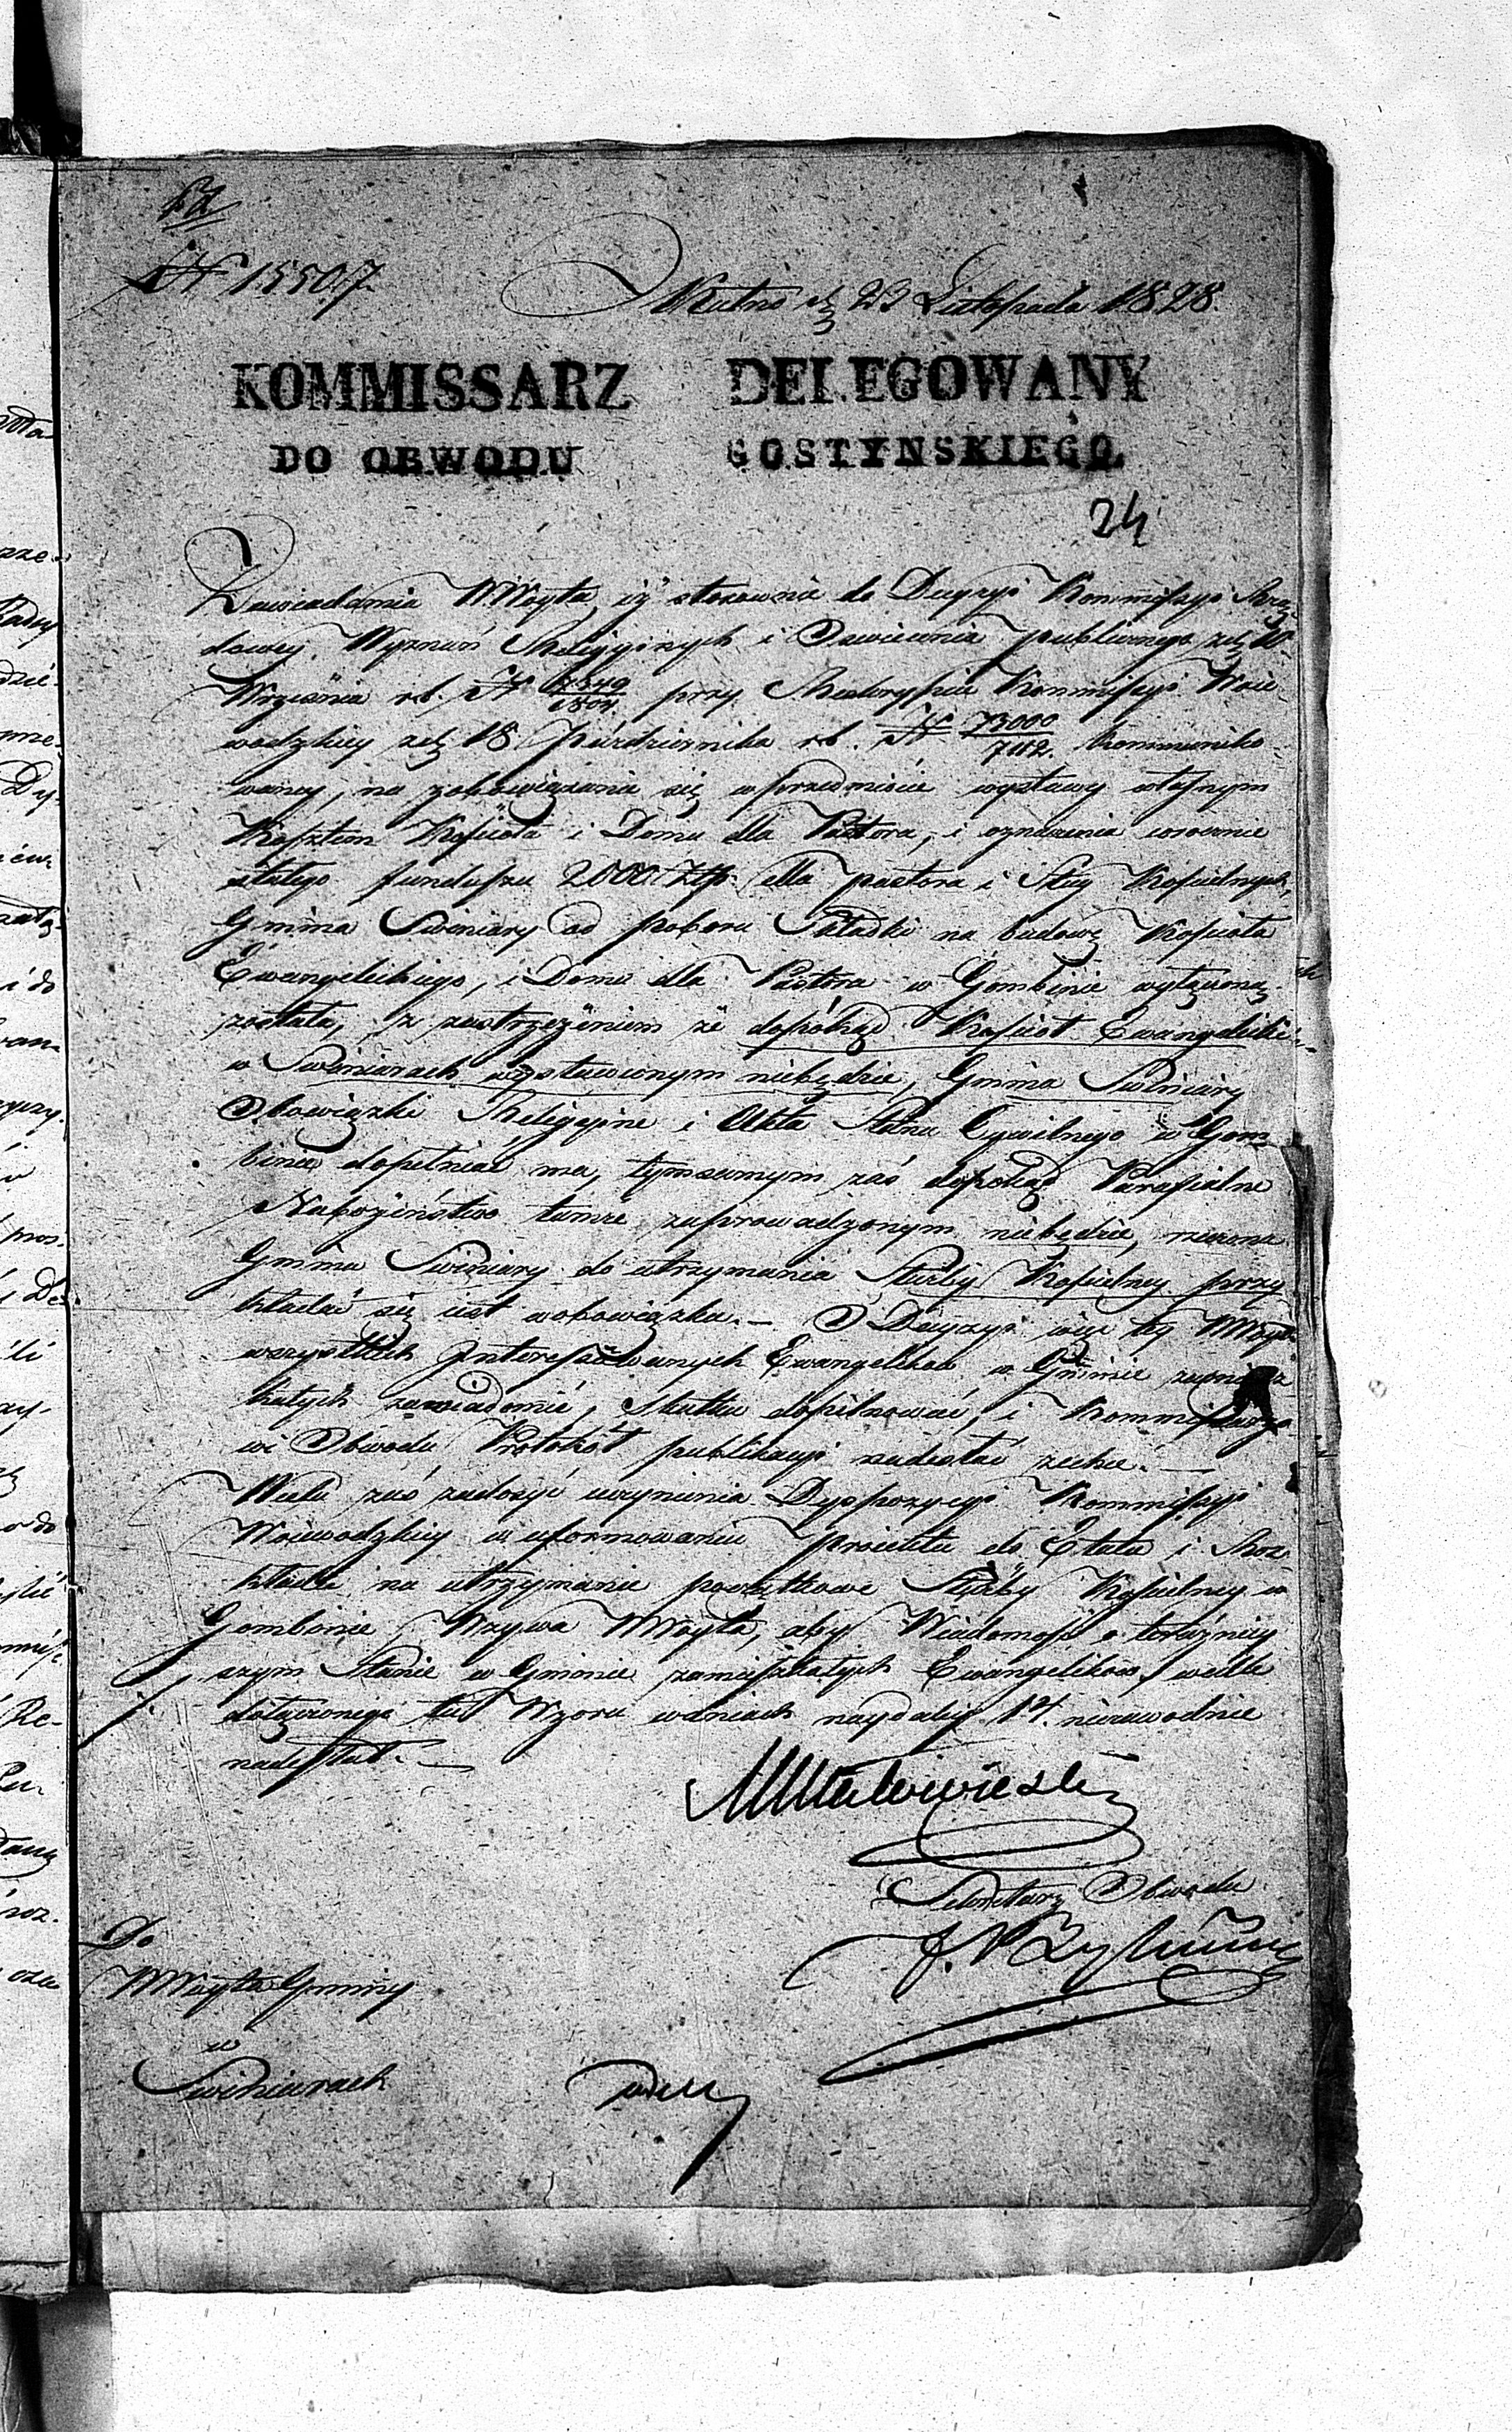 N 15507.
Kutno d. 23 Listopada 1828.
KOMMISSARZ DELEGOWANY
DO OBWODU GOSTYNSKIEGO.
24
Zawiadamia W. Woyta iż stosownie do Decyzyi Kommissyi Rzą-
dowey Wyznań Religyjnych i Oswiecenia publicznego z d.
Września r. b. N przy Reskrypcie Kommissyi Woie-
wodzkiey z d. 18 Października r. b. N 73000/7112. kommuniko-
waney, na zobowiązanie się w przedmiocie wystawy własnym
Kosztem Kościoła i Domu dla Pastora, i oznaczenia wiecznie
stałego funduszu 2000 Złp. dla pastora i Sług Kościelnych,
Gmina Swiniary od poboru Składki na budowę Kościoła
Ewangelickiego, i Domu dla Pastora w Gombinie wyłączoną
została, z zastrzeżeniem że dopókąd Kościół Ewangelicki
w Swiniarach wystawionym niebędzie, Gmina Swiniary
Obowiązki Religyine i Akta Stanu Cywilnego w Gom-
binie dopełniać ma, tymsamym zaś dopokąd Parafialne
Nabożeństwo tamże zaprowadzonym niebędzie, rzeczona
Gmina Swiniary do utrzymania Służby Kościelney przy
kładać się iest w obowiązku. — O Decyzyi więc tey W Woyt
wszystkich Interessowanych Ewangelików w Gminie zamiesz
kałych zawiadomić, Skutku dopilnować, i Kommissarzo
wi Obwodu Protokół publikacyi nadesłać zechce. —
W celu zaś zadosyć uczynienia Dyspozycyi Kommissyi
Woiewodzkiey w uformowaniu proiektu do Etatu i Roz
kładu na utrzymanie początkowe Służby Kościelney w
Gombinie, Wzywa W Woyta, aby Wiadomość o teraźniey
szym Stanie w Gminie zamieszkałych Ewangelików wedle
dołączonego tu Wzoru w dniach naydaley 14. niezawodnie
nadesłał. —
Sekretarz Obwodu
Do
W Woyta Gminy
w
Swiniarach